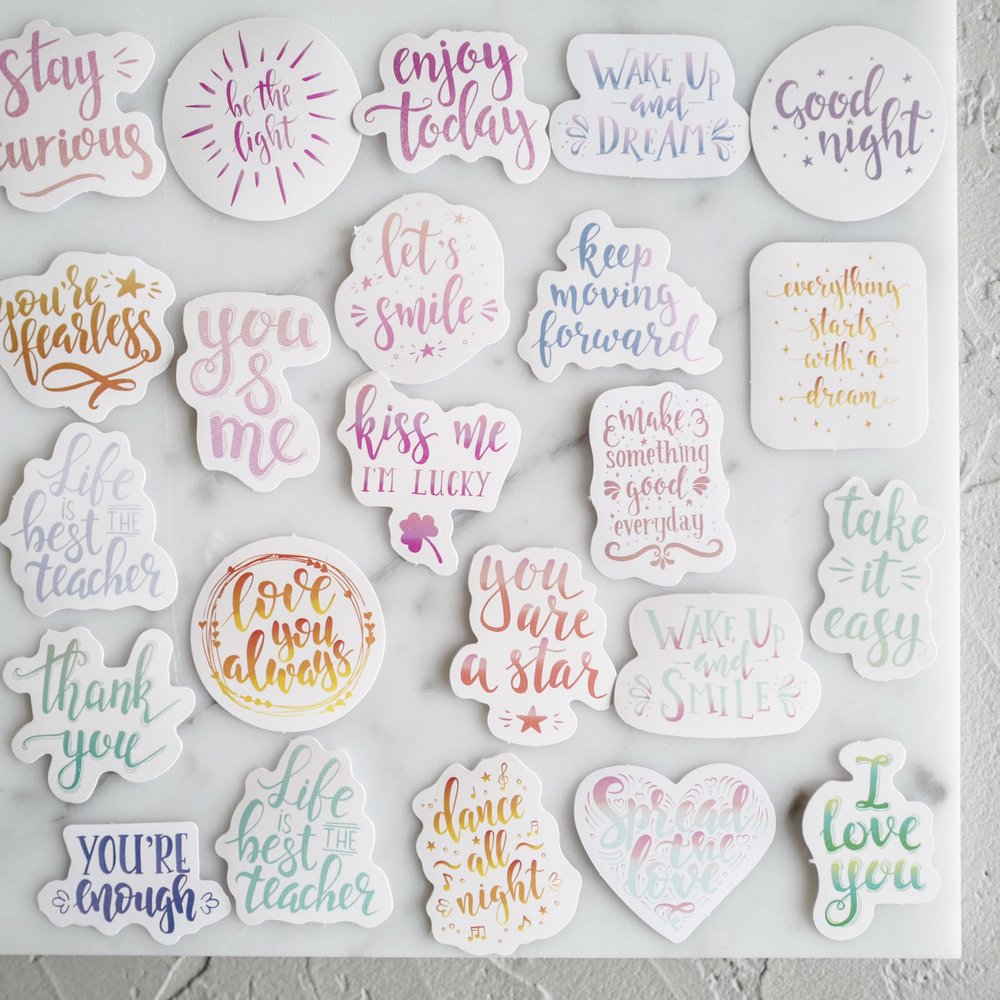 stay
curious
be the
light
enjoy
today
WAKE UP
and
DREAM
Good
night
you're
fearless
you
&
me
let's
smile
keep
moving
forward
everything
starts
with a
dream
Life
IS
best THE
teacher
kiss me
I'M LUCKY
make
something
good
everyday
take
it
easy
love
you
always
you
are
a star
WAKE UP
and
SMILE
thank
you
YOU'RE
enough
Life
IS
best THE
teacher
dance
all
night
Spread
the
love
I
love
you